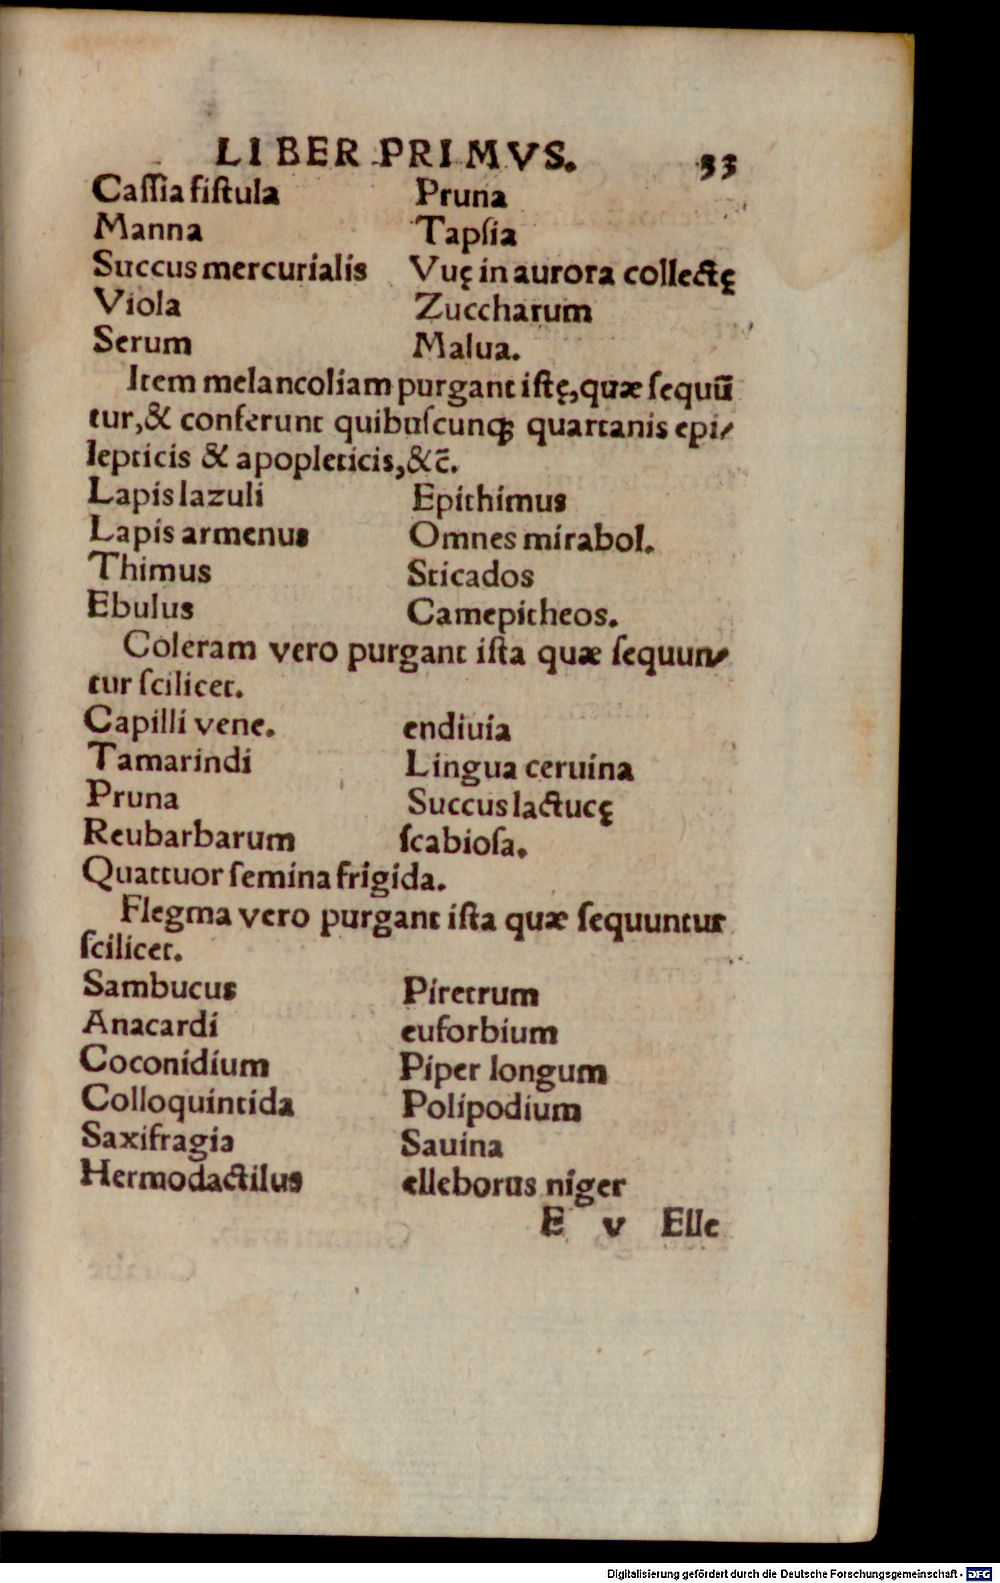 LIBER PRIMVS. 33
Caſſia fiſtula Pruna
Manna Tapſia
Succus mercurialis Vuę in aurora collectę
Viola Zuccharum
Serum Malua.
Item melancoliam purgant iſtę, quæ ſequū
tur, & conferunt quibuſcunqꝫ quartanis epi-
lepticis & apopleticis, &c̄.
Lapis lazuli Epithimus
Lapis armenus Omnes mirabol.
Thimus Sticados
Ebulus Camepitheos.
Coleram vero purgant iſta quæ ſequun-
tur ſcilicet.
Capilli vene. endiuia
Tamarindi Lingua ceruina
Pruna Succus lactucę
Reubarbarum ſcabioſa.
Quattuor ſemina frigida.
Flegma vero purgant iſta quæ ſequuntur
ſcilicet.
Sambucus Piretrum
Anacardi euforbium
Coconidium Piper longum
Colloquintida Polipodium
Saxifragia Sauina
Hermodactilus elleborus niger
E v Elle
Digitalisierung gefördert durch die Deutsche Forschungsgemeinschaft - DFG